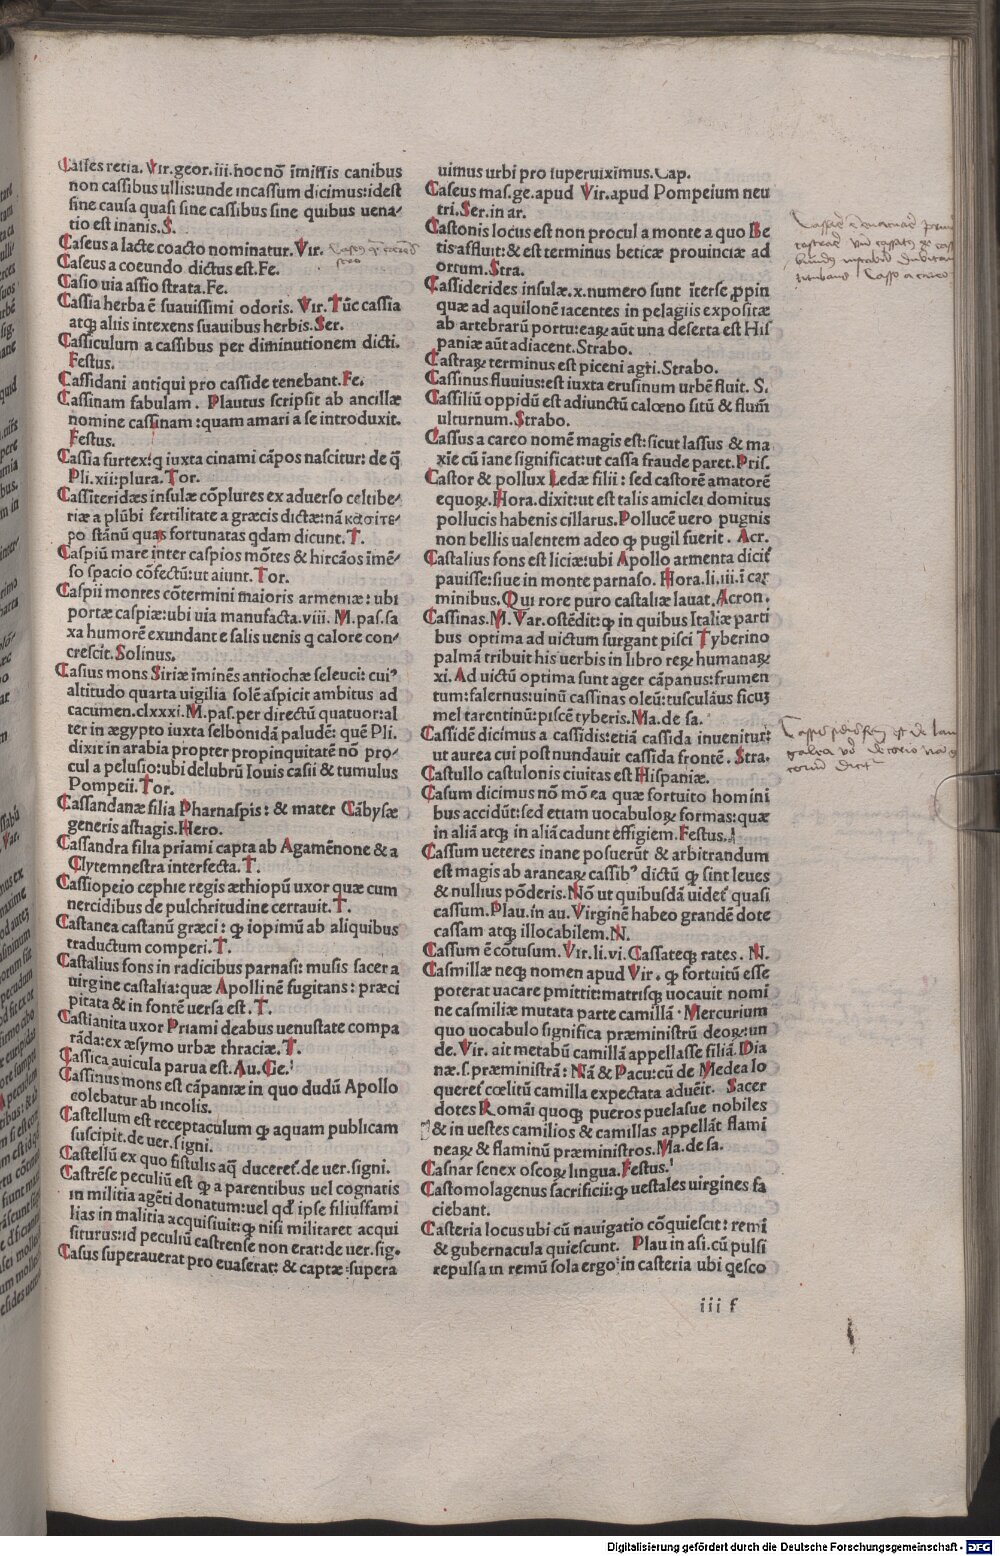 Casses retia. Vir.geor.iii.hoc nō īmissis canibus
non cassibus ullis:unde incassum dicimus:idest
sine causa quasi sine cassibus sine quibus uena/
tio est inanis.S.
Caseus a lacte coacto nominatur. Vir.
Caseus a coeundo dictus est.Fe.
Casio uia assio strata.Fe.
Cassia herba ē suauissimi odoris. Vir. Tūc cassia
atqꝫ aliis intexens suauibus herbis.Ser.
Cassiculum a cassibus per diminutionem dicti.
Festus.
Cassidani antiqui pro casside tenebant.Fe.
Cassinam fabulam. Plautus scripsit ab ancillæ
nomine cassinam:quam amari a se introduxit.
Festus.
Cassia furtex:q iuxta cinami cāpos nascitur: de q̄
Pli.xii:plura.Tor.
Cassiteridæs insulæ cōplures ex aduerso celtibe/
riæ a plūbi fertilitate a græcis dictæ:nā κασιτε/
ρο stānū quas fortunatas qdam dicunt.T.
Caspiū mare inter caspios mōtes & hircāos īmē/
so spacio cōfectū:ut aiunt.Tor.
Caspii montes cōtermini maioris armeniæ: ubi
portæ caspiæ:ubi uia manufacta.viii. M.pas.sa
xa humorē exundant e salis uenis q calore con/
crescit.Solinus.
Casius mons Siriæ īminēs antiochæ seleuci: cuiꝰ
altitudo quarta uigilia solē aspicit ambitus ad
cacumen.clxxxi.M.pas.per directū quatuor:al
ter in ægypto iuxta selbonidā paludē: quē Pli.
dixit in arabia propter propinquitatē nō pro/
cul a pelusio:ubi delubrū Iouis casii & tumulus
Pompeii.Tor.
Cassandanæ filia Pharnaspis: & mater Cābysæ
generis astiagis.Hero.
Cassandra filia priami capta ab Agamēnone & a
Clytemnestra interfecta.T.
Cassiopeio cephie regis æthiopū uxor quæ cum
nercidibus de pulchritudine certauit.T.
Castanea castanū græci: ꝙ iopimū ab aliquibus
traductum comperi.T.
Castalius fons in radicibus parnasi: musis sacer a
uirgine castalia:quæ Apollinē fugitans: præci
pitata & in fontē uersa est.T.
Castianita uxor Priami deabus uenustate compa
rāda:ex æsymo urbæ thraciæ.T.
Cassica auicula parua est.Au.Ge.
Cassinus mons est cāpaniæ in quo dudū Apollo
colebatur ab incolis.
Castellum est receptaculum ꝙ aquam publicam
suscipit.de uer.signi.
Castellū ex quo fistulis aq̄ duceret.de uer.signi.
Castrēse peculiū est ꝙ a parentibus uel cognatis
in militia agēti donatum:uel qd' ipse filiusfami
lias in malitia acquisiuit:ꝙ nisi militaret acqui
siturus:id peculiū castrense non erat:de uer.sig.
Casus superauerat pro euaserat: & captæ:supera
uimus urbi pro superuiximus.Cap.
Caseus mas.ge.apud Vir.apud Pompeium neu
tri.Ser.in ar.
Castonis locus est non procul a monte a quo Be
tis affluit:& est terminus beticæ prouinciæ ad
ortum.Stra.
Cassiderides insulæ.x.numero sunt īterse ꝓpin
quæ ad aquilonē iacentes in pelagiis expositæ
ab artebrarū portu:eaꝝ aūt una deserta est His
paniæ aūt adiacent.Strabo.
Castraꝝ terminus est piceni agri.Strabo.
Cassinus fluuius:est iuxta erusinum urbē fluit. S.
Cassiliū oppidū est adiunctū calœno sitū & flum̄
ulturnum.Strabo.
Cassus a careo nomē magis est:sicut lassus & ma
xīe cū īane significat:ut cassa fraude paret.Pris.
Castor & pollux Ledæ filii: sed castorē amatorē
equoꝝ.Hora.dixit:ut est talis amiclei domitus
pollucis habenis cillarus.Pollucē uero pugnis
non bellis ualentem adeo ꝙ pugil fuerit. Acr.
Castalius fons est liciæ:ubi Apollo armenta dicit̄
pauisse:siue in monte parnaso. Hora.li.iii.ī car
minibus.Qui rore puro castaliæ lauat.Acron.
Cassinas.M.Var.ostēdit:ꝙ in quibus Italiæ parti
bus optima ad uictum surgant pisci Tyberino
palmā tribuit his uerbis in libro reꝝ humanaꝝ
xi.Ad uictū optima sunt ager cāpanus:frumen
tum:falernus:uinū cassinas oleū:tusculāus ficuꝫ
mel tarentinū:piscē tyberis.Ma.de sa.
Cassidē dicimus a cassidis:etiā cassida inuenitur:
ut aurea cui post nundauit cassida frontē. Stra.
Castullo castulonis ciuitas est Hispaniæ.
Casum dicimus nō mō ea quæ fortuito homini
bus accidūt:sed etiam uocabuloꝝ formas:quæ
in aliā atqꝫ in aliā cadunt effigiem.Festus.
Cassum ueteres inane posuerūt & arbitrandum
est magis ab araneaꝝ cassibꝰ dictū ꝙ sint leues
& nullius pōderis.Nō ut quibusdā uidet̄ quasi
cassum.Plau.in au.Virginē habeo grandē dote
cassam atqꝫ illocabilem.N.
Cassum ē cōtusum.Vir.li.vi.Cassateqꝫ rates. N.
Casmillæ neqꝫ nomen apud Vir. ꝙ fortuitū esse
poterat uacare pmittit:matrisqꝫ uocauit nomi
ne casmiliæ mutata parte camillā. Mercurium
quo uocabulo significa præministrū deoꝝ:un
de.Vir. ait metabū camillā appellasse filiā.Dia
næ.s.præministrā: Nā & Pacu:cū de Medea lo
queret̄ cœlitū camilla expectata aduēit. Sacer
dotes Romāi quoqꝫ pueros puelasue nobiles
& in uestes camilios & camillas appellāt flami
neaꝝ & flaminū præministros.Ma.de sa.
Casnar senex oscoꝝ lingua.Festus.
Castomolagenus sacrificii:ꝙ uestales uirgines fa
ciebant.
Casteria locus ubi cū nauigatio cōquiescit: remi
& gubernacula quiescunt. Plau in asi.cū pulsi
repulsa in remū sola ergo in casteria ubi qesco
iii f
Digitalisierung gefördert durch die Deutsche Forschungsgemeinschaft - DFG